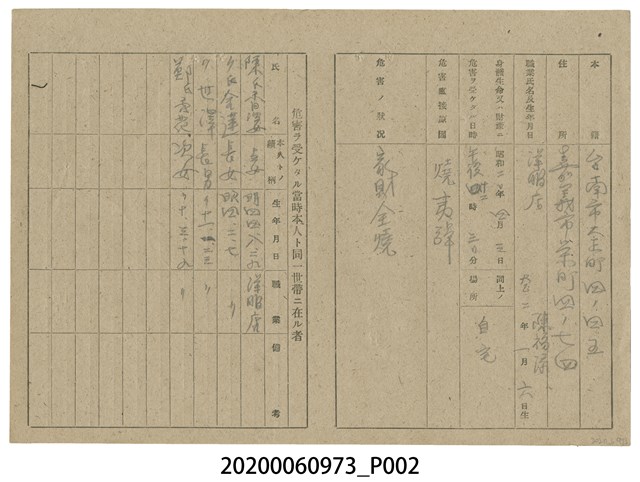 本籍 台南市大正町四ノ四五
住所 嘉義市栄町四ノ七四
職業氏名及生年月日 洋服店 陳 二年一月六日生
身體生命又ハ財産ニ危害ヲ受ケタル日時 昭和二〇年四月三日午後 時二〇分
同上ノ場所 自宅
危害直接証因 焼夷弾
危害ノ状況 家財全焼
危害ヲ受ケタル当時本人ト同一世帯ニ在ル者
氏名 本人トノ続柄 生年月日 職業 備考
陳氏香 妻 明四四、八、二九 洋服店
〃氏金蓮 長女 昭四、二、七 〃
〃世澤 長男 〃十一、 〃
鄭氏 次女 〃十、三、十九 〃
20200060973_P002